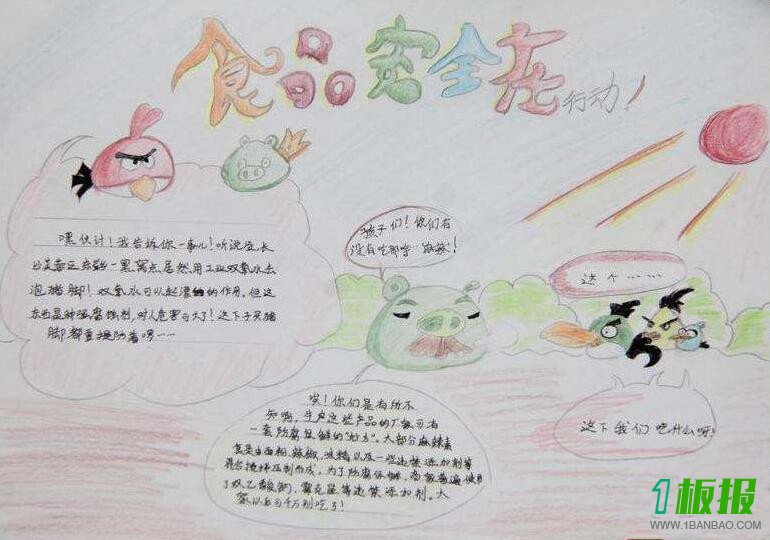 食品安全在行动!
嘿伙计!我告诉你一事儿!听说在长
一黑窝点居然用工业双氧水去
泡猪脚!双氧水可以起漂的作用,但这
东西是种强腐蚀剂,对人危害可大了!这下子买猪
脚都要提防着喽……
孩子们!你们有
没有吃那啥“麻辣”!
这个……
唉!你们是有所不
知啊,生产这些产品的厂家可有
一套防腐保鲜的“妙方”。大部分麻辣素
食是由面粉、辣椒、味精以及一些违禁添加剂等
混合搅拌压制而成。为了防腐保鲜,普遍使用
了双乙酸钠、霉克星等违禁添加剂。大
家以后可千万别吃了!
这下我们吃什么呀!
1板报
WWW.1BANBAO.COM